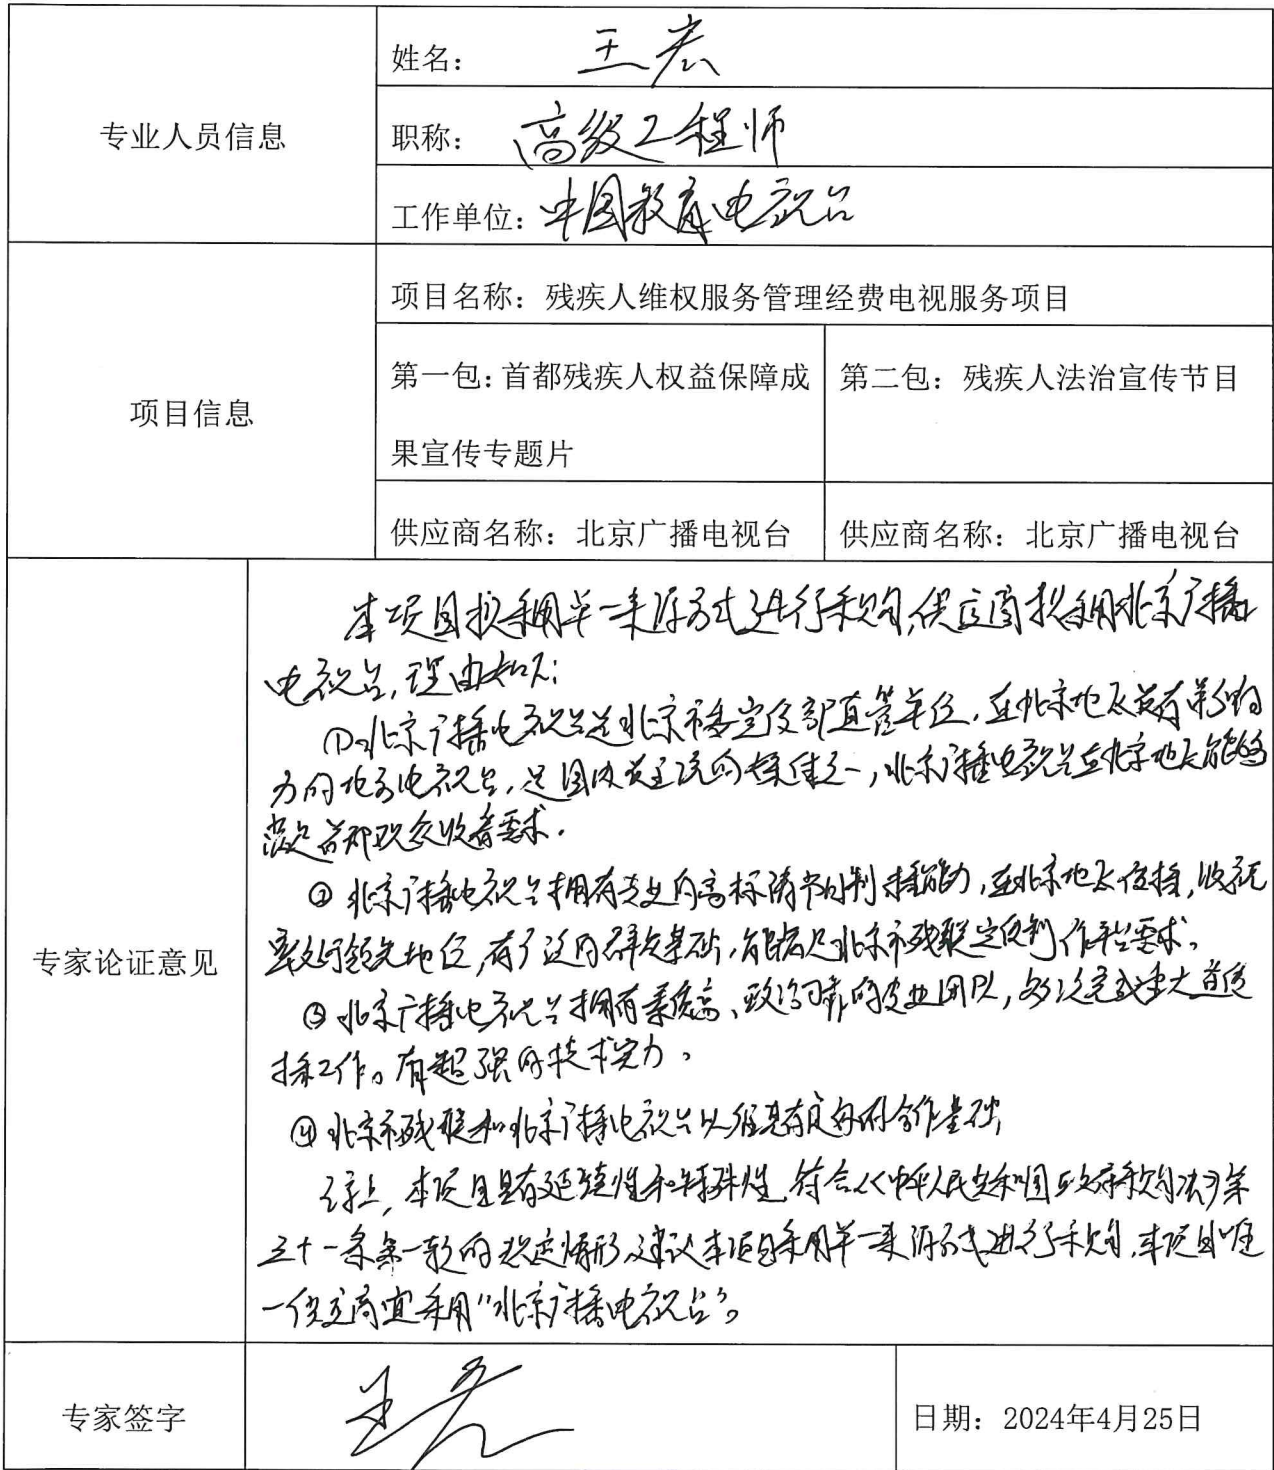 专业人员信息
姓名：王宏
职称：高级工程师
工作单位：中国教育电视台
项目信息
项目名称：残疾人维权服务管理经费电视服务项目
第一包：首都残疾人权益保障成
果宣传专题片
第二包：残疾人法治宣传节目
供应商名称：北京广播电视台
供应商名称：北京广播电视台
专家论证意见
本项目拟采用单一来源方式进行采购，供应商拟采用北京广播
电视台，理由如下：
①北京广播电视台是北京市委宣传部直管单位，在北京地区最有影响
力的地方电视台，是国内最主流的媒体之一，北京广播电视台在北京地区能够
满足首都观众收看要求。
②北京广播电视台拥有专业的高标清节目制播能力，在北京地区传播，收视
率处于领先地位，有广泛的群众基础，能满足北京市残联宣传制作平台要求。
③北京广播电视台拥有素质高、政治可靠的专业团队，多次完成重大宣传
播工作。有超强的技术实力。
④北京市残联和北京广播电视台以往具有良好的合作基础，
综上，本项目具有延续性和特殊性，符合《中华人民共和国政府采购法》第
三十一条第一款的规定情形，建议本项目采用单一来源方式进行采购，本项目唯
一供应商宜采用“北京广播电视台”。
专家签字
王宏
日期：2024年4月25日